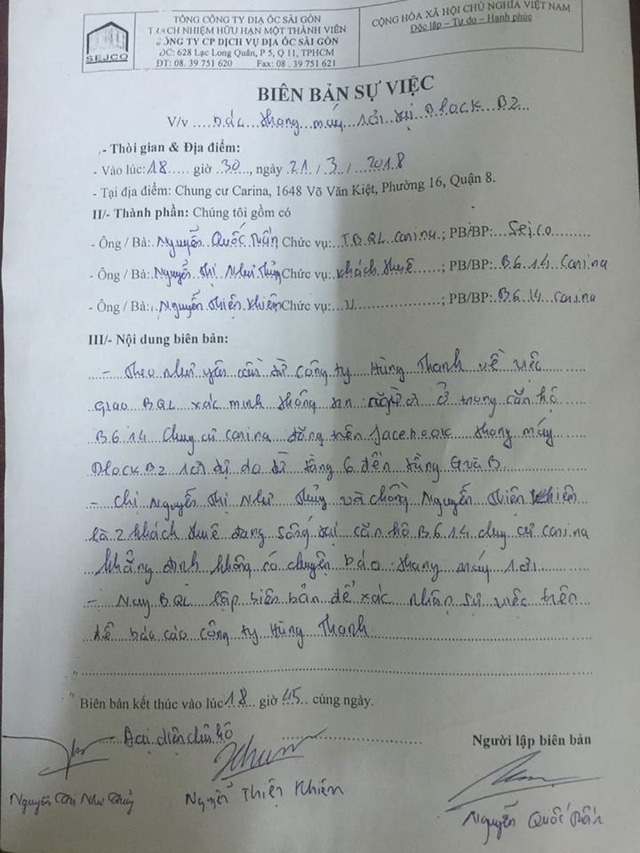 SEJCO
TỔNG CÔNG TY ĐỊA ỐC SÀI GÒN
TRÁCH NHIỆM HỮU HẠN MỘT THÀNH VIÊN
CÔNG TY CP DỊCH VỤ ĐỊA ỐC SÀI GÒN
ĐC: 628 Lạc Long Quân, P 5, Q 11, TPHCM
ĐT: 08. 39 751 620 Fax: 08. 39 751 621
CỘNG HÒA XÃ HỘI CHỦ NGHĨA VIỆT NAM
Độc lập – Tự do – Hạnh phúc
BIÊN BẢN SỰ VIỆC
V/v báo thang máy rơi tại Block B2
I/- Thời gian & Địa điểm:
- Vào lúc: 18 giờ 30, ngày 21 / 3 / 2018
- Tại địa điểm: Chung cư Carina, 1648 Võ Văn Kiệt, Phường 16, Quận 8.
II/- Thành phần: Chúng tôi gồm có
- Ông / Bà: Nguyễn Quốc Tuấn Chức vụ: T.BQL Carina; PB/BP: Sejco
- Ông / Bà: Nguyễn Thị Như Thủy Chức vụ: Khách thuê; PB/BP: B6.14 Carina
- Ông / Bà: Nguyễn Thiện Khiêm Chức vụ: ; PB/BP: B.6.14 carina
III/- Nội dung biên bản:
- Theo như yêu cầu từ công ty Hùng Thanh về việc
giao BQL xác minh thông tin người ở trong căn hộ
B.6.14 Chung cư carina đăng trên facebook thang máy
Block B2 rơi tự do từ tầng 6 đến tầng G và B.
- Chị Nguyễn Thị Như Thủy và chồng Nguyễn Thiện Khiêm
là 2 khách thuê đang sống tại căn hộ B6.14 chung cư carina
khẳng định không có chuyện báo thang máy rơi.
- Nay BQL lập biên bản để xác nhận sự việc trên
để báo cáo công ty Hùng Thanh.
Biên bản kết thúc vào lúc 18 giờ 45 cùng ngày.
Đại diện chủ hộ
Người lập biên bản
Nguyễn Thị Như Thủy
Nguyễn Thiện Khiêm
Nguyễn Quốc Tuấn